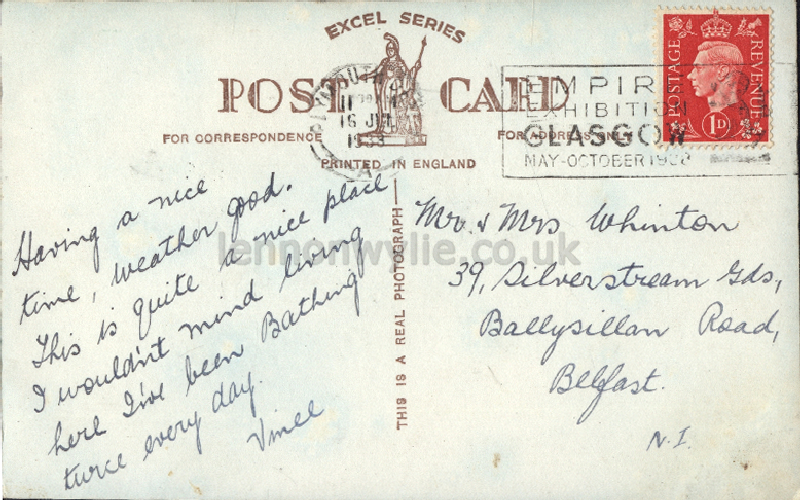 EXCEL SERIES
POST CARD
FOR CORRESPONDENCE
FOR ADDRESS ONLY
PRINTED IN ENGLAND
POSTAGE REVENUE
1D
1938
EMPIRE
EXHIBITION
GLASGOW
MAY-OCTOBER 1938
Having a nice
time, weather good.
This is quite a nice place
I wouldn't mind living
here I've been Bathing
twice every day.
THIS IS A REAL PHOTOGRAPH
Mr. & Mrs Whinton
39, Silverstream Gds,
Ballysillan Road,
Belfast.
N.I.
lennonwylie.co.uk